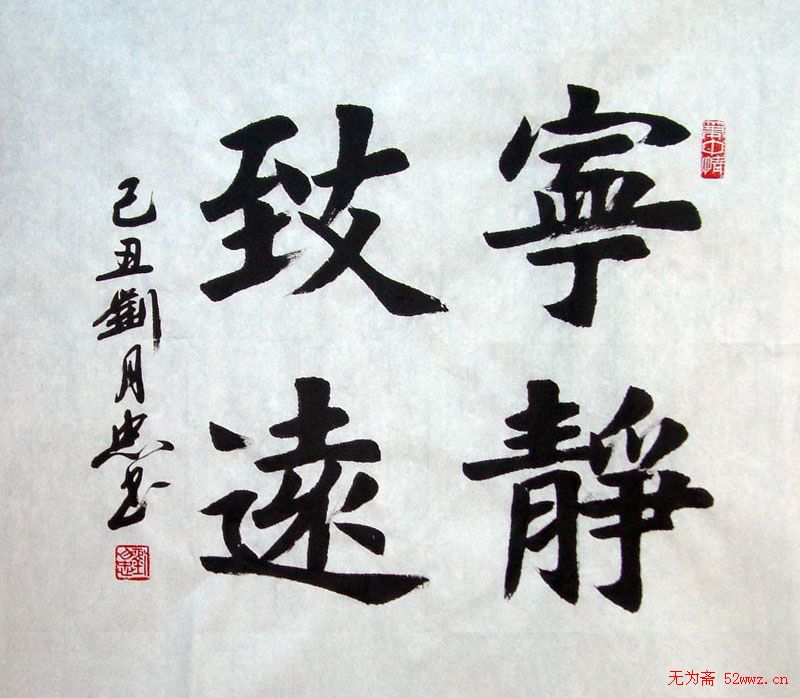 寧靜
致遠
己丑劉月忠书
无为斋 52wwz.cn